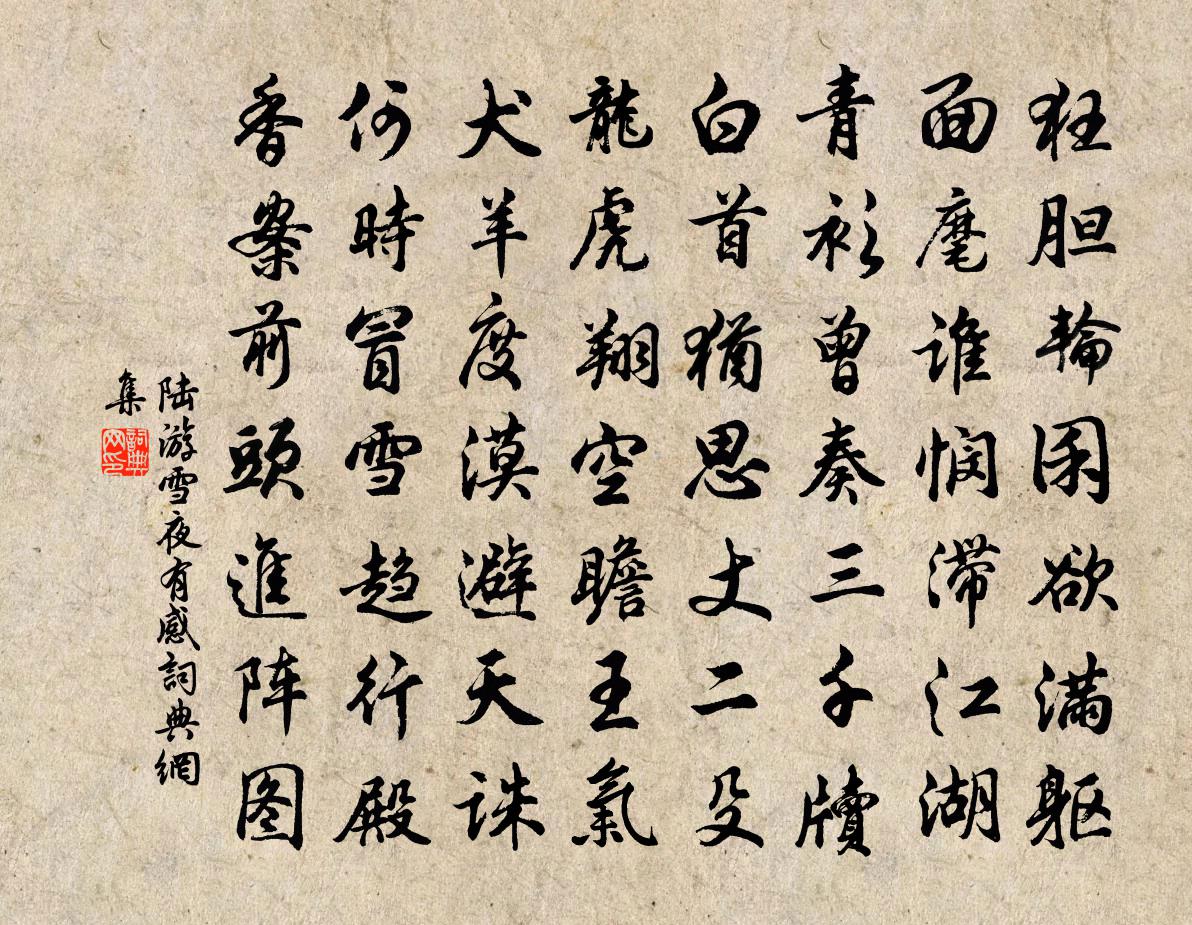 狂胆輪囷欲满躯
面麾谁悯滞江湖
青衫曾奏三千牍
白首猶思丈二殳
龍虎翔空瞻王氣
犬羊度漠避天诛
何時冒雪趋行殿
香案前頭進阵图
陆游雪夜有感詞典網
集
詞典网印